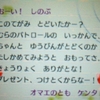 おーい！ しのぶ
このてがみ とどいたかー？
むらのパトロールの いっかんで、
ちゃんと ゆうびんがとどくのか
たしかめてみようと おもってさ
きょうりょく ありがとな！
プレゼント、つけとくからなー！
オマエのとも ケンタ